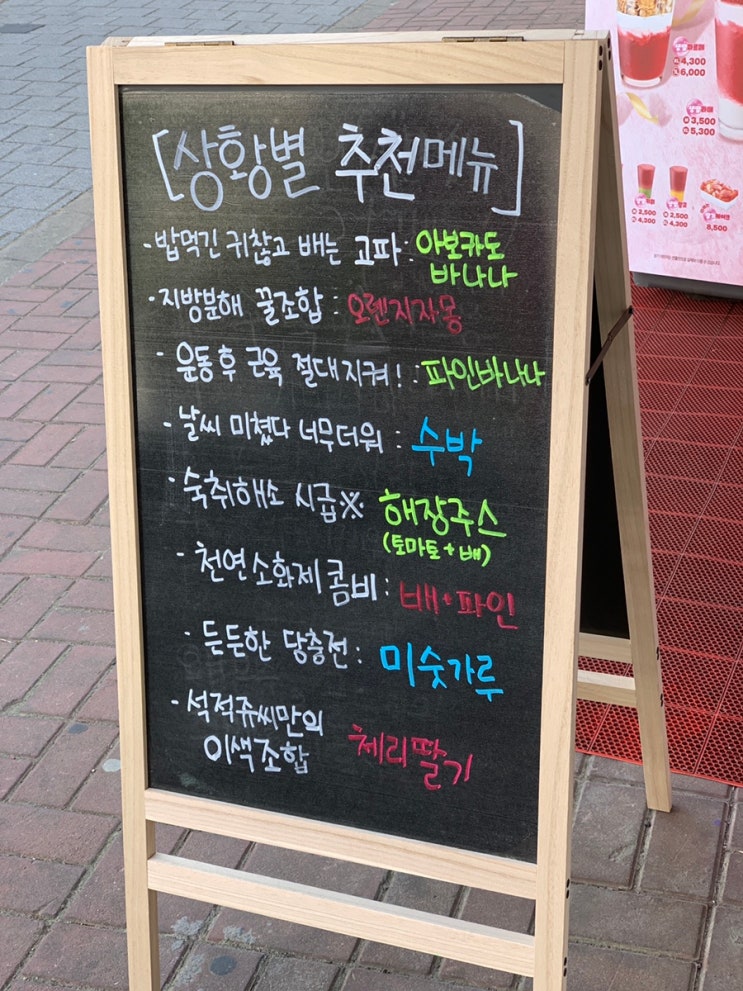 [상황별 추천메뉴]
· 밥먹긴 귀찮고 배는 고파 : 아보카도
바나나
· 지방분해 꿀조합 : 오렌지자몽
· 운동 후 근육 절대지켜! : 파인바나나
· 날씨 미쳤다 너무더워 : 수박
· 숙취해소 시급※ 해장주스
(토마토+배)
· 천연소화제 콤비 : 배+파인
· 든든한 당충전 : 미숫가루
· 석적쥬씨만의
이색조합 체리딸기
4,300
6,000
3,500
5,300
2,500
4,300
2,500
4,300
8,500